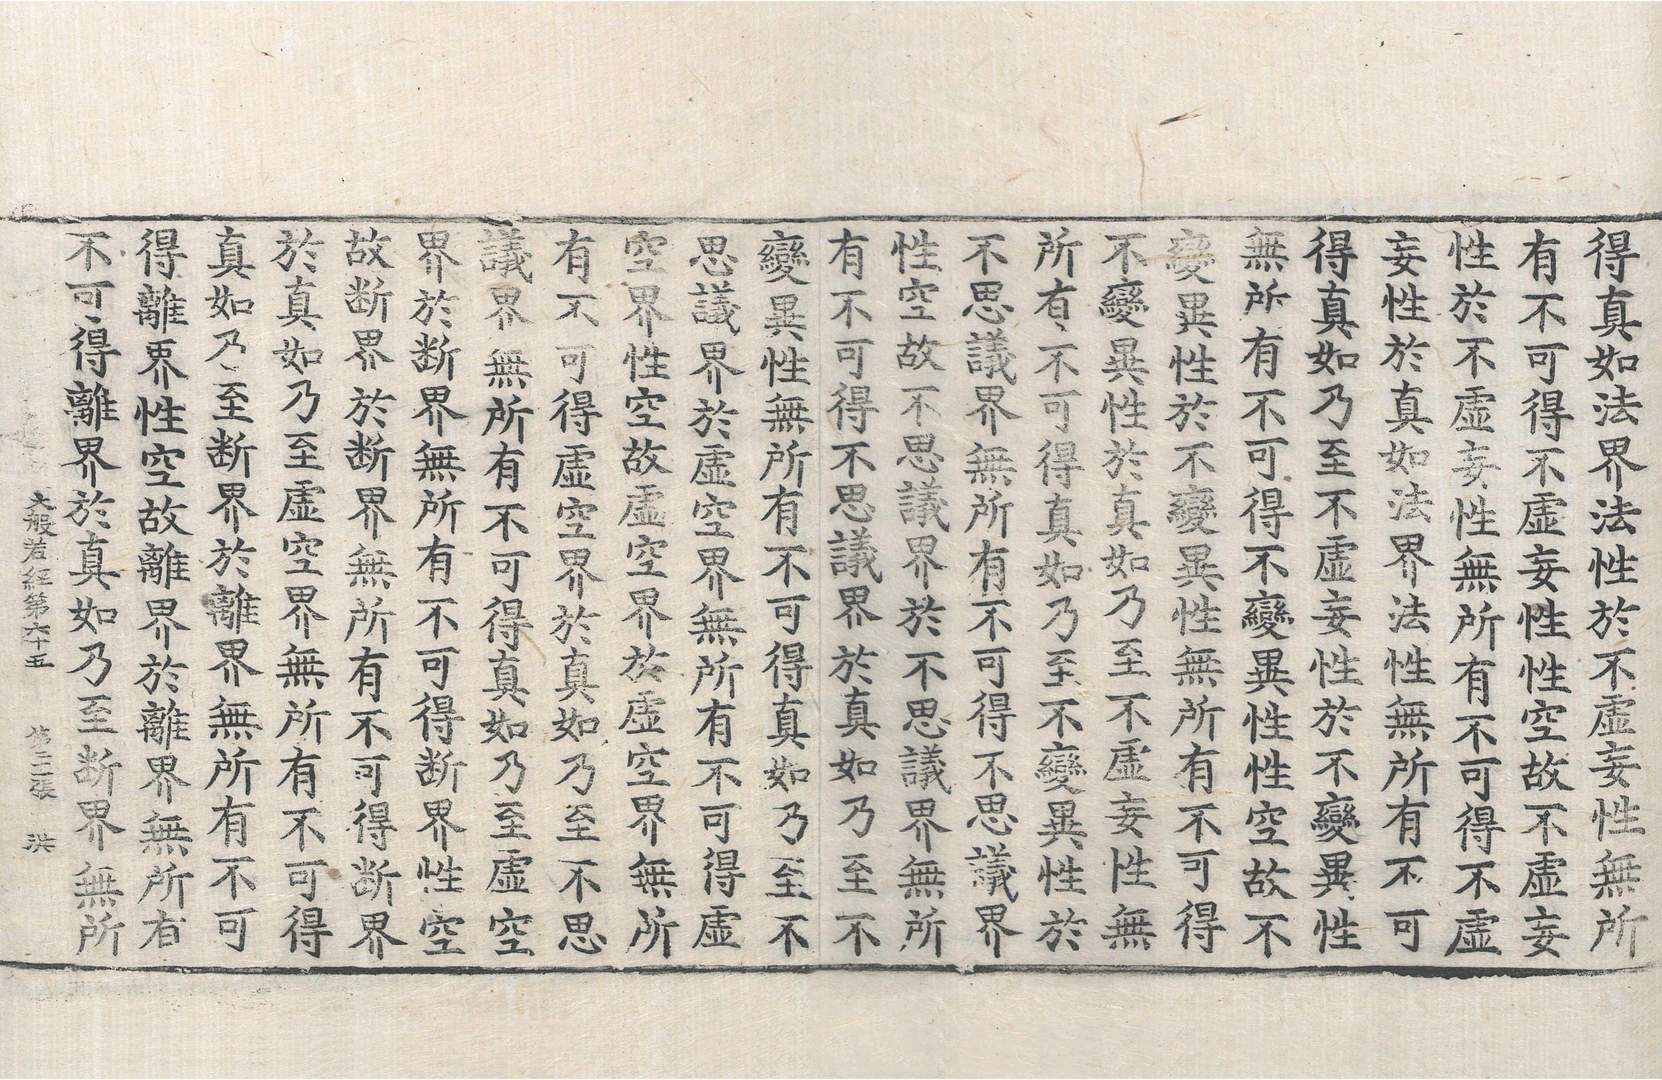 得真如法界法性於不虛妄性無所
有不可得不虛妄性性空故不虛妄
性於不虛妄性無所有不可得不虛
妄性於真如法界法性無所有不可
得真如乃至不虛妄性於不變異性
無所有不可得不變異性性空故不
變異性於不變異性無所有不可得
不變異性於真如乃至不虛妄性無
所有不可得真如乃至不變異性於
不思議界無所有不可得不思議界
性空故不思議界於不思議界無所
有不可得不思議界於真如乃至不
變異性無所有不可得真如乃至不
思議界於虛空界無所有不可得虛
空界性空故虛空界於虛空界無所
有不可得虛空界於真如乃至不思
議界無所有不可得真如乃至虛空
界於断界無所有不可得断界性空
故断界於断界無所有不可得断界
於真如乃至虛空界無所有不可得
真如乃至断界於離界無所有不可
得離界性空故離界於離界無所有
不可得離界於真如乃至断界無所
大般若經第六十五 第三張 洪